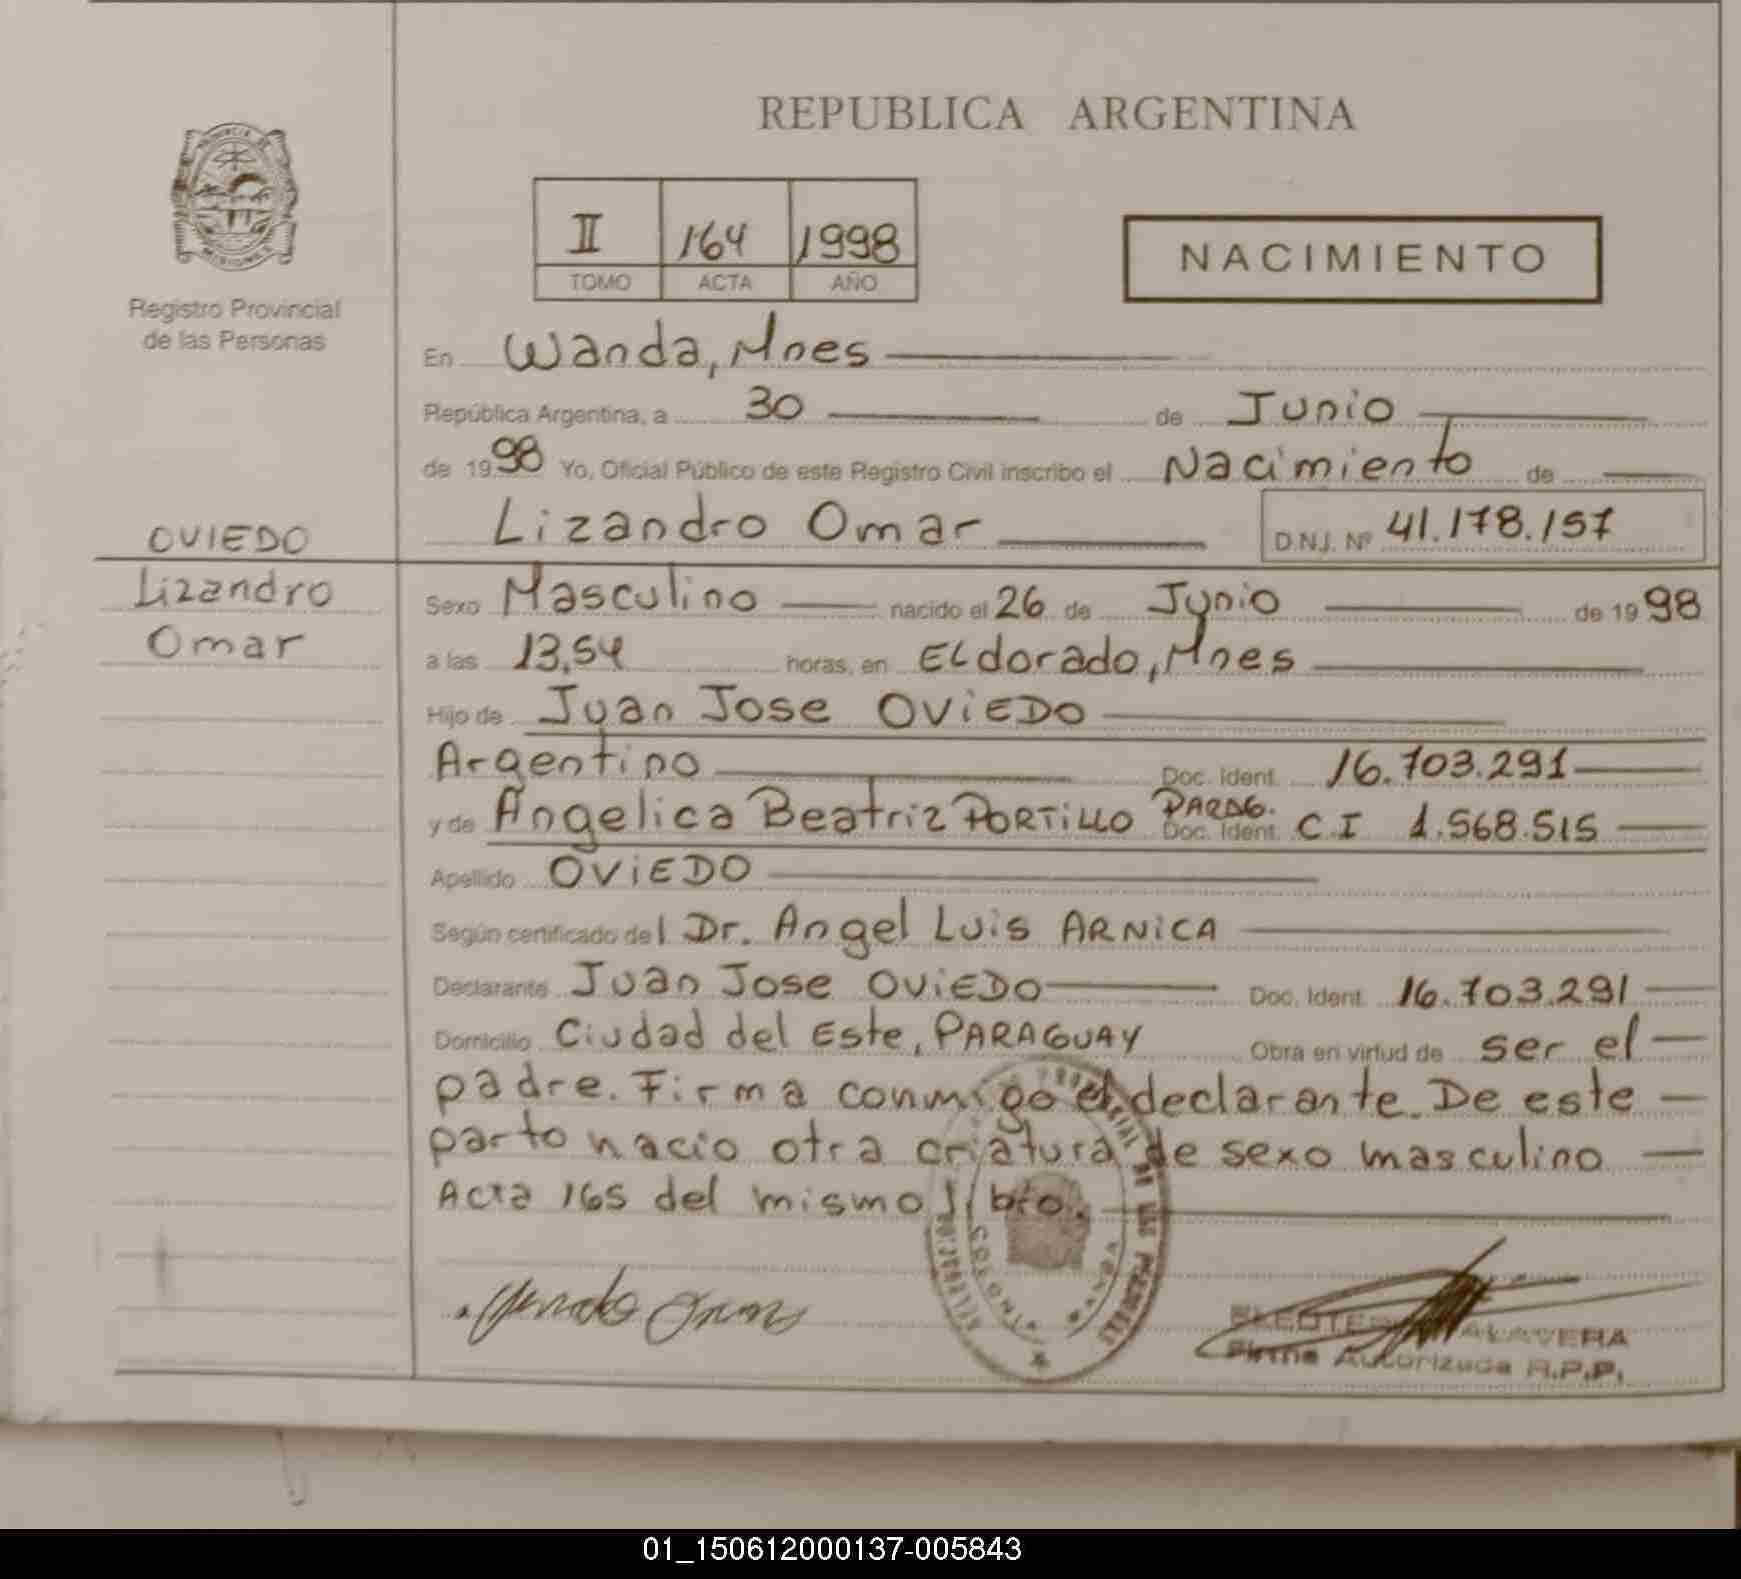 REPUBLICA ARGENTINA
II 164 1998
TOMO ACTA AÑO
NACIMIENTO
Registro Provincial
de las Personas
En Wanda, Mnes
República Argentina, a 30 de Junio
de 1998 Yo, Oficial Público de este Registro Civil inscribo el Nacimiento de
Lizandro Omar D.N.I. Nº 41.178.157
OVIEDO
Lizandro
Omar
Sexo Masculino nacido el 26 de Junio de 1998
a las 13,54 horas, en ELdorado, Mnes
Hijo de Juan Jose OViEDO
Argentino Doc. Ident. 16.703.291
y de Angelica Beatriz PORTiLLO PARAG. Doc. Ident. C.I 1.568.515
Apellido OViEDO
Según certificado del Dr. Angel Luis ARNiCA
Declarante Juan Jose OViEDO Doc. Ident. 16.703.291
Domicilio Ciudad del Este, PARAGUAY Obra en virtud de ser el
padre. Firma conmigo el declarante. De este
parto nacio otra criatura de sexo masculino
Acta 165 del mismo libro.
WANDA
ALAVERA
Firma Autorizada R.P.P.
01_150612000137-005843